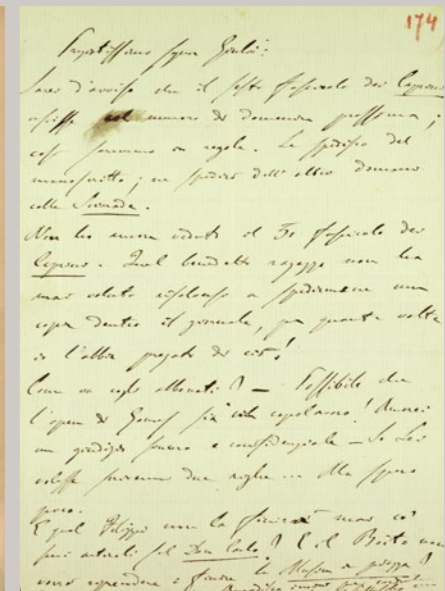 174
Pregiatissimo signor Giulio!
Sarei d'avviso che il sesto fascicolo dei Capricci
uscisse col numero di domenica prossima;
così saremo in regola. Le spedisco del
manoscritto; ne spedirò dell'altro domani
colla Sciarada.
Non ho ancora veduto il 5º fascicolo dei
Quel benedetto ragazzo non ha
mai voluto risolversi a spedirmene una
copia dentro il giornale, per quante volte
io l'abbia pregato di ciò!
Come va cogli abbonati? — Possibile che
l'opera di Gomes sia un capolavoro! Amerei
un giudizio sincero e confidenziale — Se Lei
volesse scrivermi due righe ... Ma spero
poco.
E quel Filippi non la finirà mai co'
suoi articoli sul Don Carlo? E il Boito non
vorrà riprendere e finire la Musica in piazza?